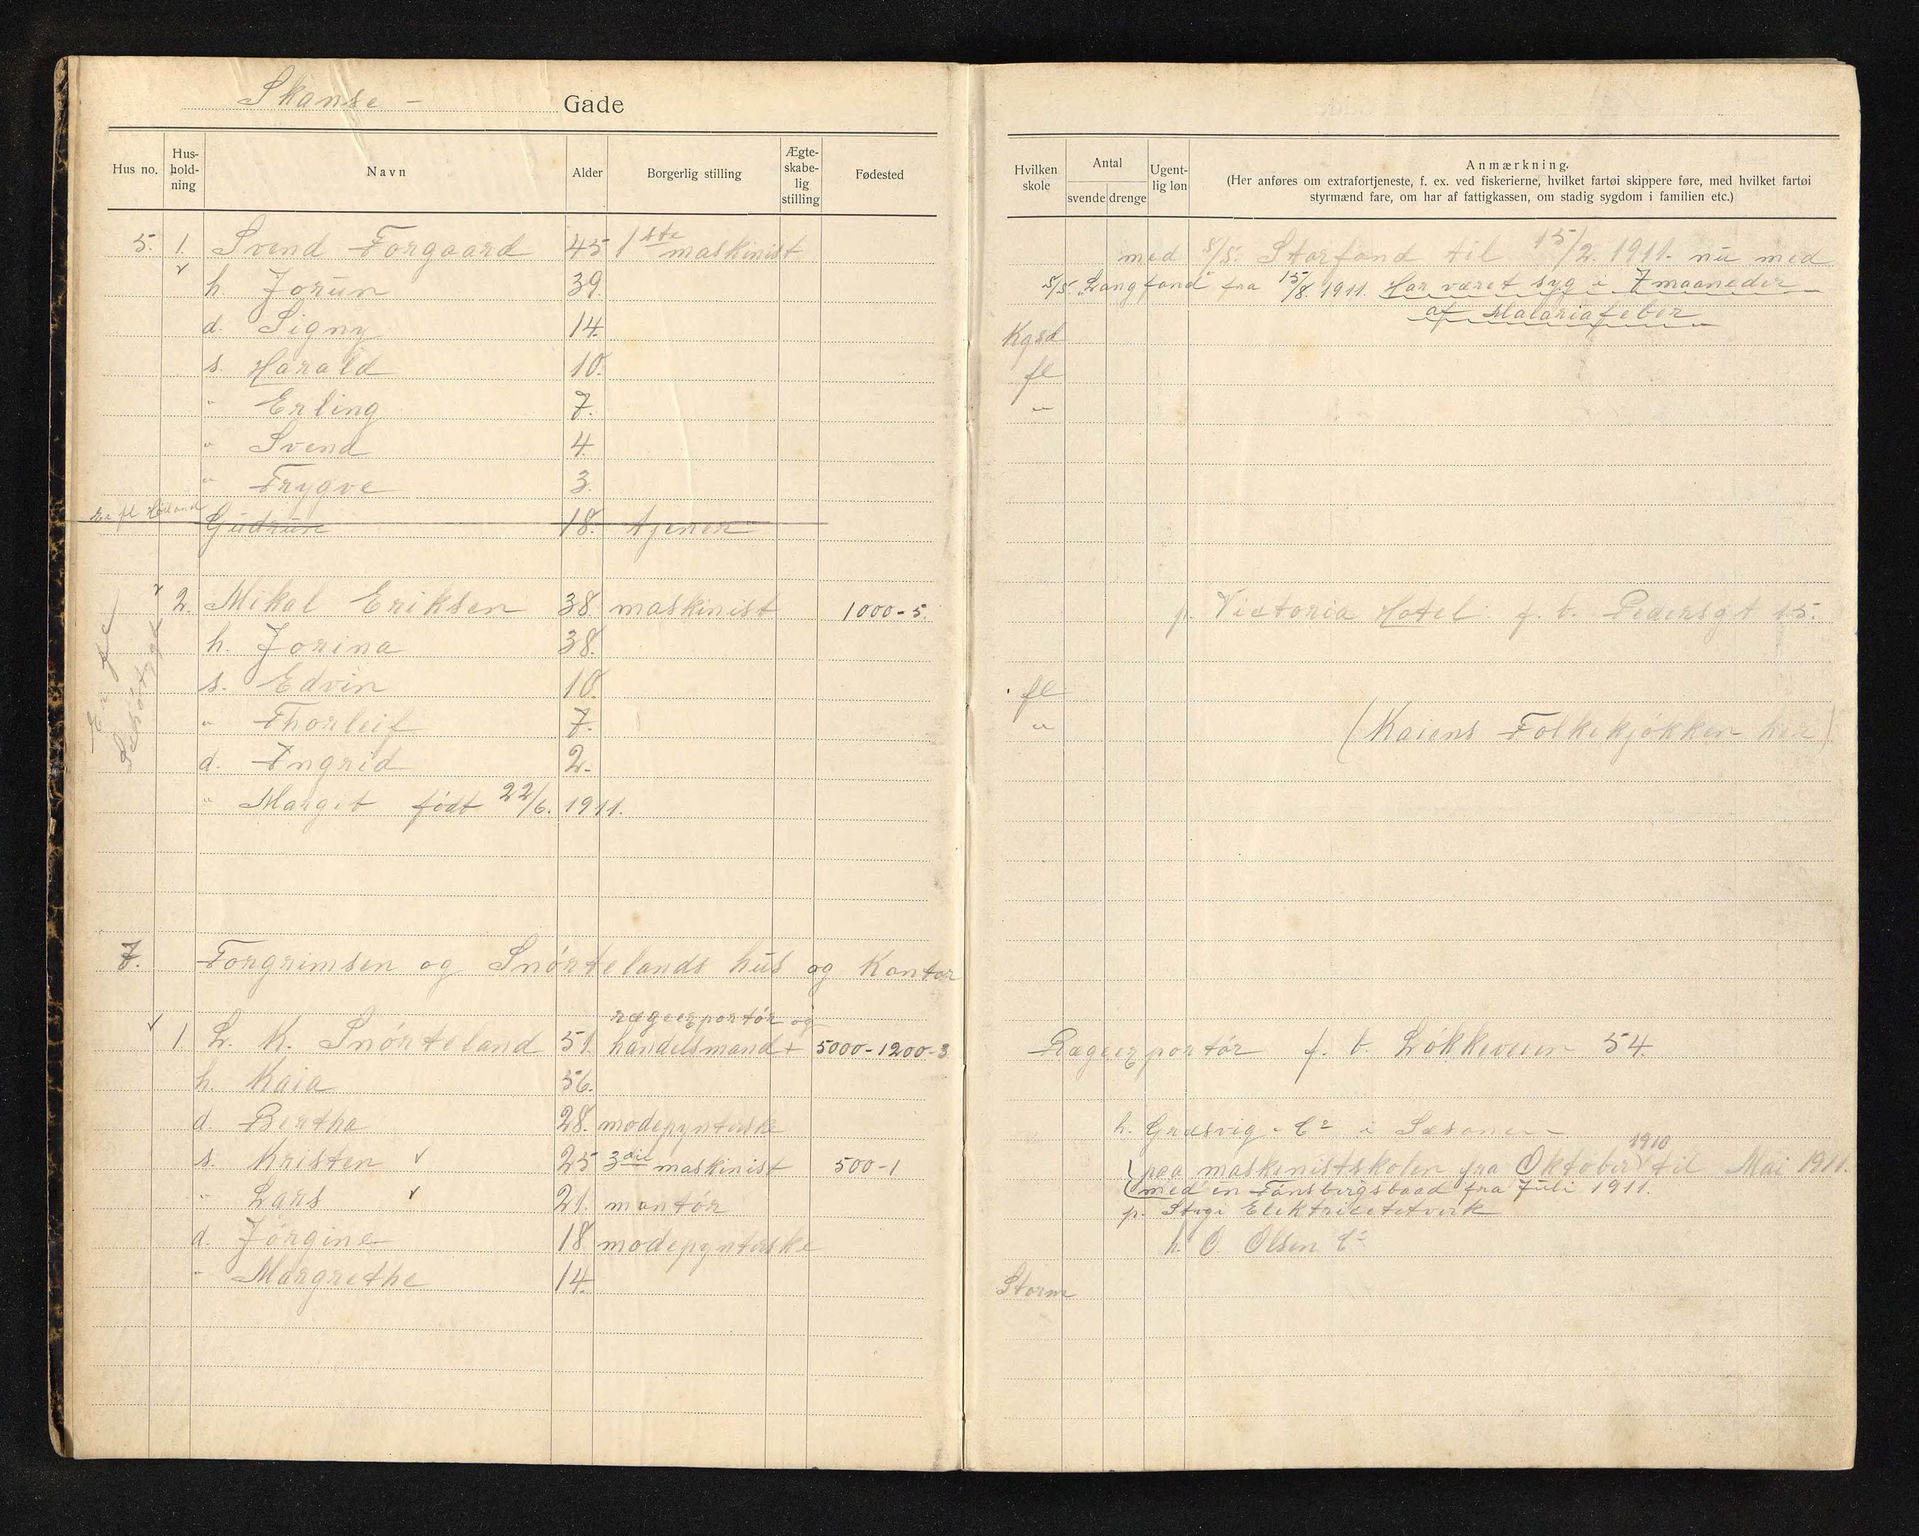 Skanse - Gade
Hus no. Hus-hold-ning Navn Alder Borgerlig stilling Ægte-skabe-lig stilling Fødested
5. 1. Svend Torgaard 45 1ste maskinist
h. Jorun 39.
d. Signy 14.
s. Harald 10.
" Erling 7.
" Svend 4.
" Trygve 3.
fl Høiland
Gudrun 18. tjener
2. Mikal Eriksen 38. maskinist 1000-5.
h. Jorina 38.
s. Edvin 10.
" Thorleif 7.
d. Ingrid 2.
" Margit født 22/6. 1911.
Er fl
7. Torgrimsen og Snørtelands hus og Kontor
rægeexportør og
1. L. K. Snørteland 51. handelsmand + 5000-1200-3
h. Kaia 56.
d. Bertha 28. modepynterske
s. Kristen 25 3die maskinist 500-1
" Lars 21. montør
d. Jørgine 18 modepynterske
" Margrethe 14.
Hvilken skole Antal svende drenge Ugent-lig løn Anmærkning.
(Her anføres om extrafortjeneste, f. ex. ved fiskerierne, hvilket fartøi skippere føre, med hvilket fartøi
styrmænd fare, om har af fattigkassen, om stadig sygdom i familien etc.)
med s/s. Storfond til 15/2. 1911. nu med
s/s. Langfond fra 15/8. 1911. Har været syg i 7 maaneder
af Malariafeber
Kgsd
fl
"
p. Victoria Hotel. f. b. Pedersgt 15.
fl
"
(Kaiens Folkekjøkken her)
Rægeexportør f. b. Løkkeveien 54.
h. Græsvig & Co i Sæsonen
1910
paa maskinistskolen fra Oktober til Mai 1911.
med en Tønsbergsbaad fra Juli 1911.
p. Stvgr Elektricitetsverk
h. O. Olsen & Co
Storm